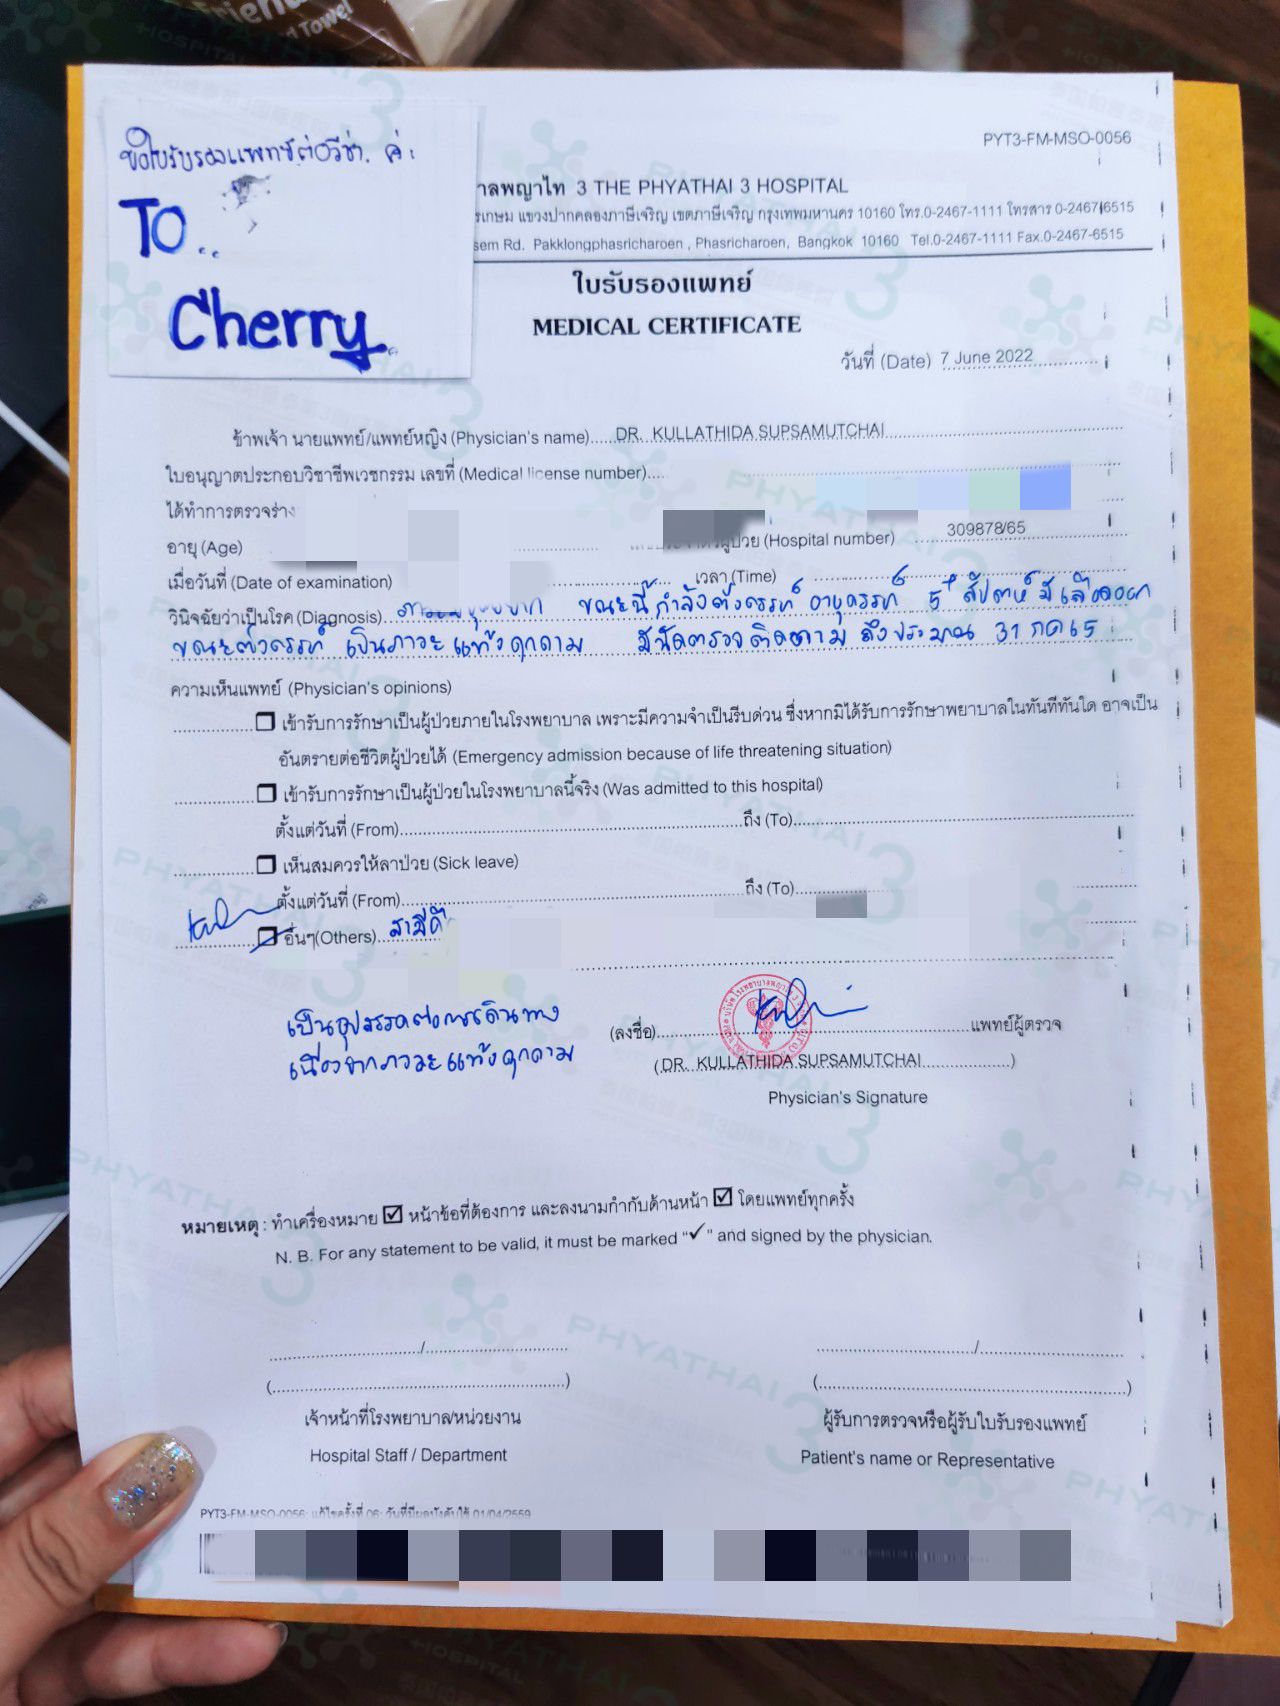 Friend
Towel
PYT3-FM-MSO-0056
ขอใบรับรองแพทย์ต่อวีซ่า. ค่ะ
TO..
Cherry
าลพญาไท 3 THE PHYATHAI 3 HOSPITAL
รเกษม แขวงปากคลองภาษีเจริญ เขตภาษีเจริญ กรุงเทพมหานคร 10160 โทร.0-2467-1111 โทรสาร 0-2467-6515
sem Rd. Pakklongphasricharoen , Phasricharoen, Bangkok 10160 Tel.0-2467-1111 Fax.0-2467-6515
ใบรับรองแพทย์
MEDICAL CERTIFICATE
วันที่ (Date) 7 June 2022
ข้าพเจ้า นายแพทย์/แพทย์หญิง (Physician's name) DR. KULLATHIDA SUPSAMUTCHAI
ใบอนุญาตประกอบวิชาชีพเวชกรรม เลขที่ (Medical license number)
ได้ทำการตรวจร่าง
อายุ (Age) ผู้ป่วย (Hospital number) 309878/65
เมื่อวันที่ (Date of examination) เวลา (Time)
วินิจฉัยว่าเป็นโรค (Diagnosis) ขณะนี้กำลังตั้งครรภ์ อายุครรภ์ 5⁺ สัปดาห์ มีเลือดออก
ขณะตั้งครรภ์ เป็นภาวะแท้งคุกคาม มีนัดตรวจติดตาม ถึงประมาณ 31 กค 65
ความเห็นแพทย์ (Physician's opinions)
เข้ารับการรักษาเป็นผู้ป่วยภายในโรงพยาบาล เพราะมีความจำเป็นรีบด่วน ซึ่งหากมิได้รับการรักษาพยาบาลในทันทีทันใด อาจเป็น
อันตรายต่อชีวิตผู้ป่วยได้ (Emergency admission because of life threatening situation)
เข้ารับการรักษาเป็นผู้ป่วยในโรงพยาบาลนี้จริง (Was admitted to this hospital)
ตั้งแต่วันที่ (From) ถึง (To)
เห็นสมควรให้ลาป่วย (Sick leave)
ตั้งแต่วันที่ (From) ถึง (To)
อื่นๆ(Others) สามี
เป็นอุปสรรคต่อการเดินทาง
เนื่องจากภาวะแท้งคุกคาม
(ลงชื่อ) แพทย์ผู้ตรวจ
(DR. KULLATHIDA SUPSAMUTCHAI)
Physician's Signature
หมายเหตุ : ทำเครื่องหมาย ☑ หน้าข้อที่ต้องการ และลงนามกำกับด้านหน้า ☑ โดยแพทย์ทุกครั้ง
N. B. For any statement to be valid, it must be marked "✓" and signed by the physician.
เจ้าหน้าที่โรงพยาบาล/หน่วยงาน
Hospital Staff / Department
ผู้รับการตรวจหรือผู้รับใบรับรองแพทย์
Patient's name or Representative
PYT3-FM-MSO-0056: แก้ไขครั้งที่ 06: วันที่มีผลบังคับใช้ 01/04/2559